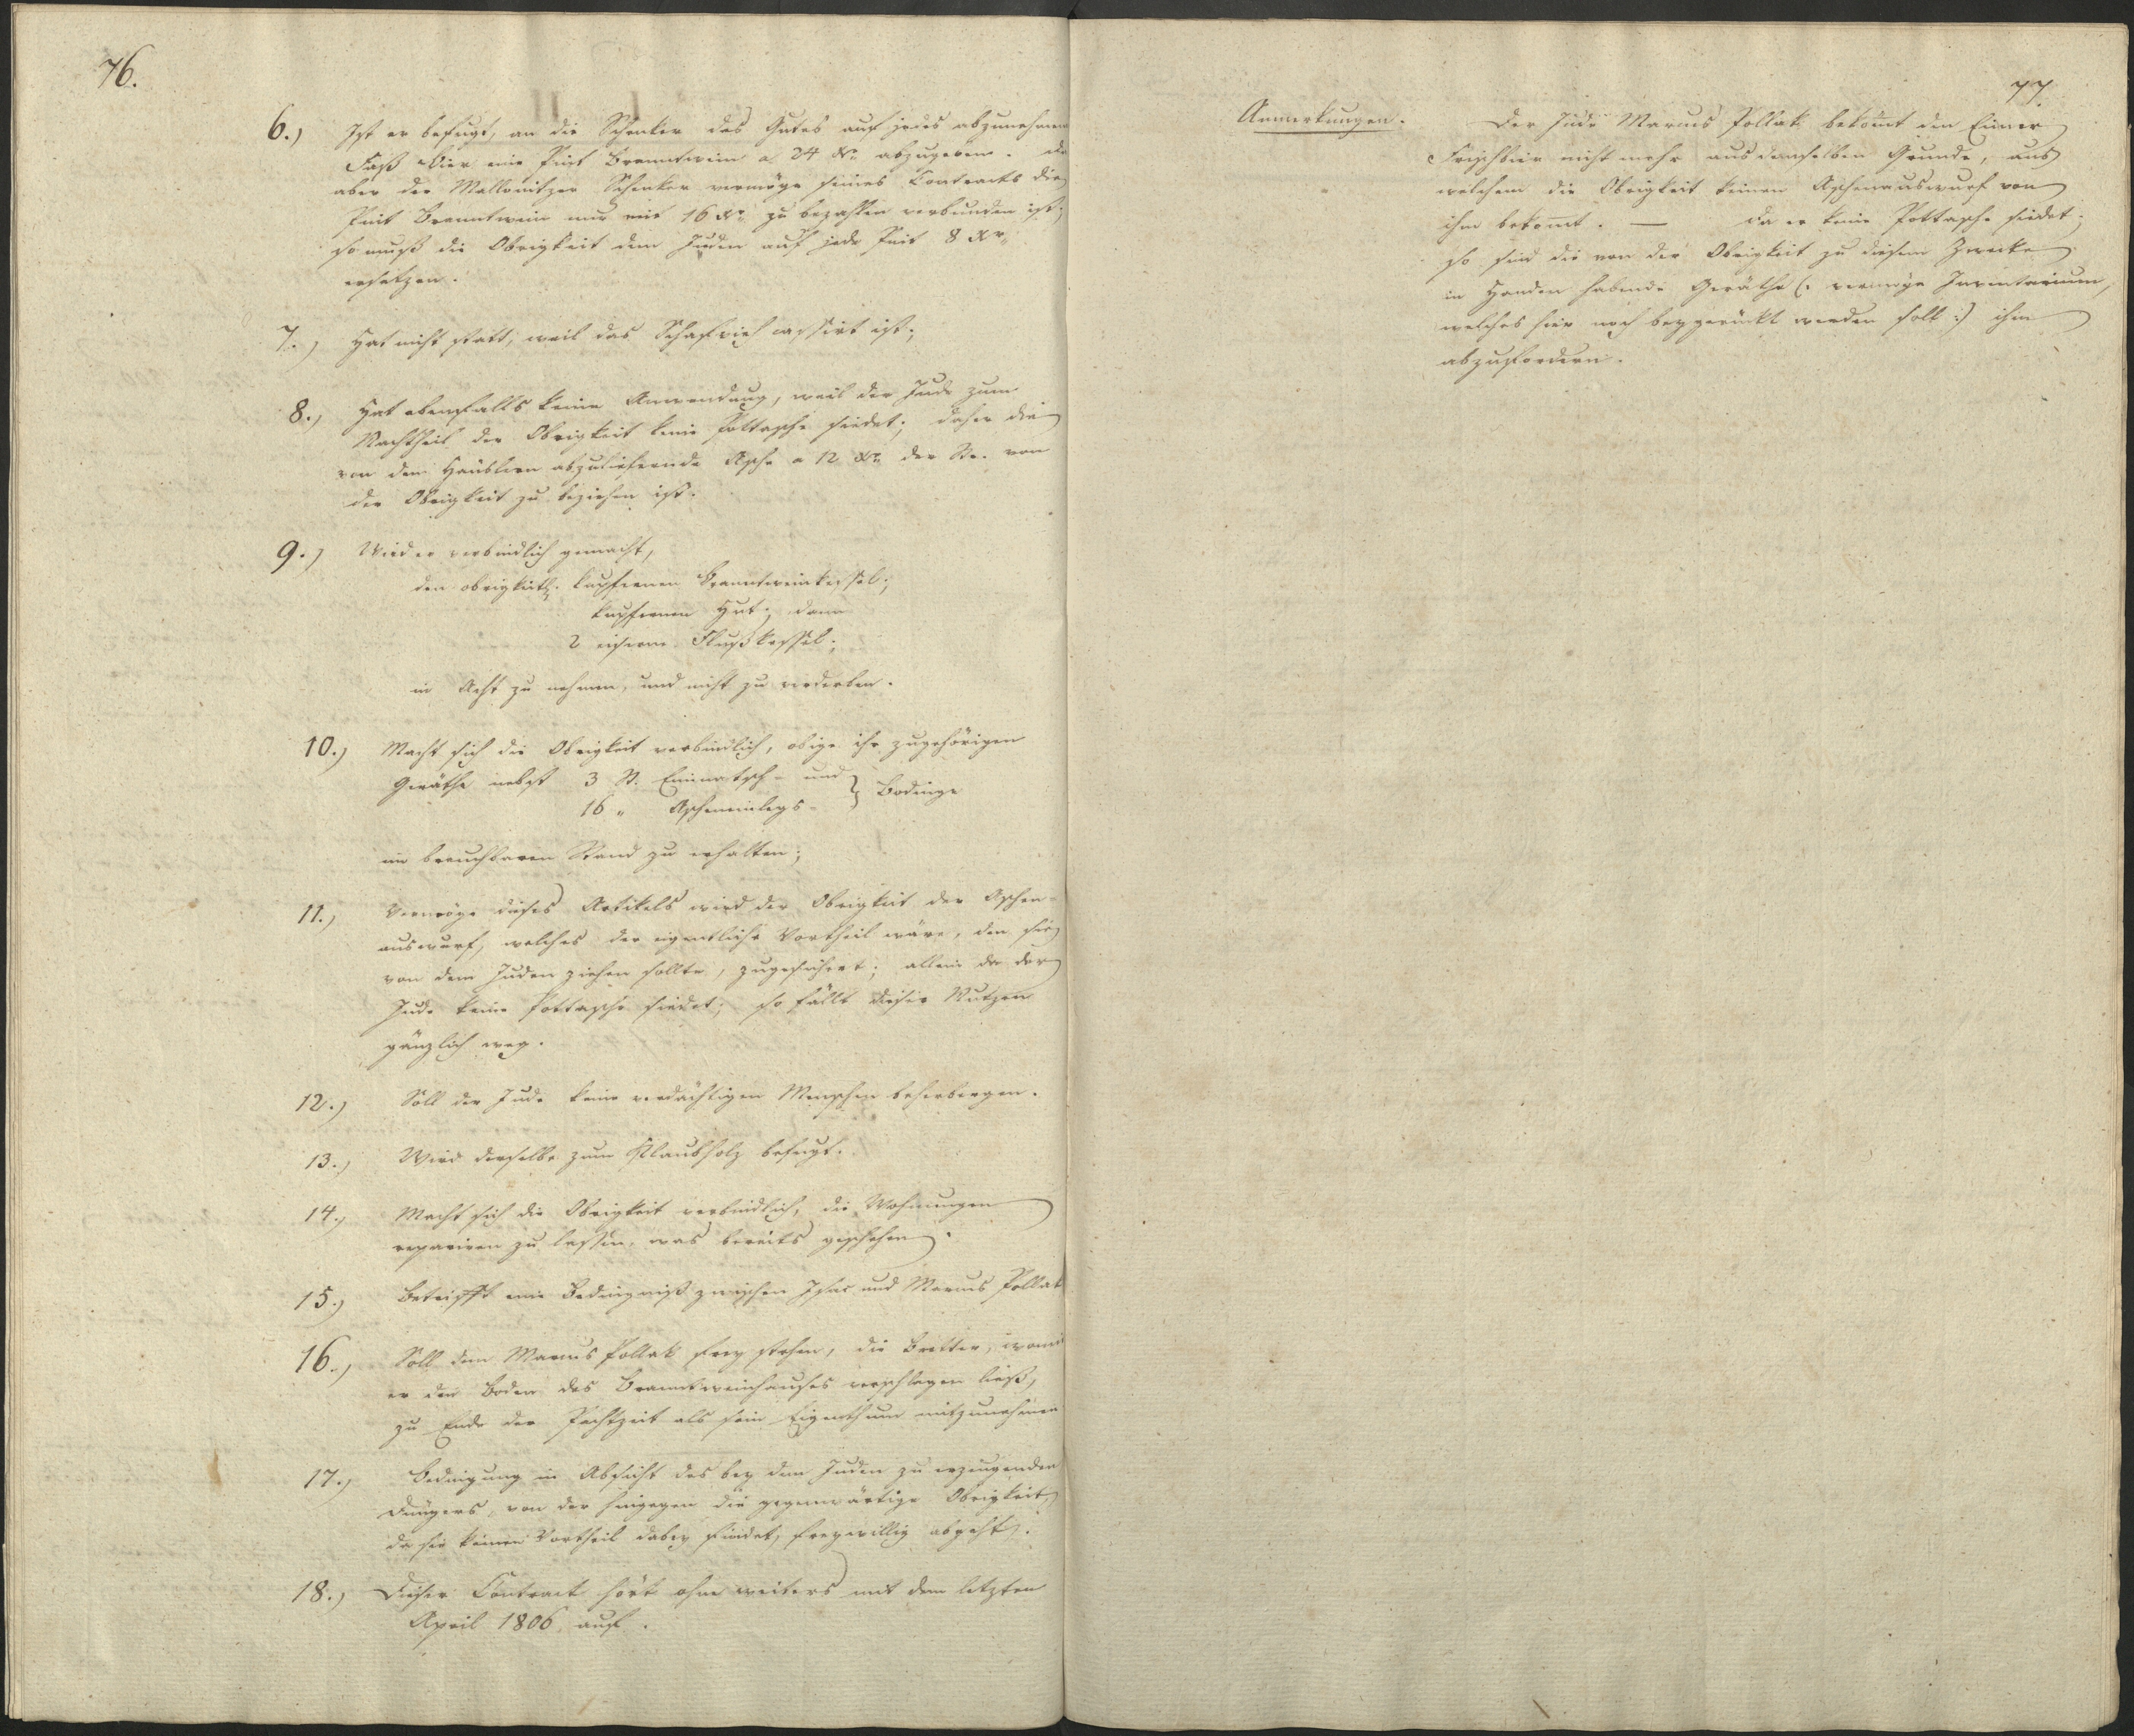 76.
6.) Ist er befugt, an die Schenker des Gutes auf jedes abzunehmen
Faß Bier eine Pint Branntwein a 24 Xr. abzugeben. Da
aber der Mallonitzer Schenker vermöge seines Contracts die
Pint Branntwein nur mit 16 Xr. zu bezahlen verbunden ist;
so muß die Obrigkeit dem Juden auf jede Pint 8 Xr.
ersetzen.
7.) Hat nicht statt, weil das Schafvieh cassirt ist;
8.) Hat ebenfalls keine Anwendung, weil der Jude zum
Nachtheil der Obrigkeit keine Pottasche siedet; daher die
von den Häuslern abzuliefernde Asche a 12 Xr. der Str. von
der Obrigkeit zu beziehen ist.
9.) Wird er verbindlich gemacht,
den obrigkeitl. kupfernen Branntweinkessel;
kupfernen Hut; dann
2 eiserne Flußkessel;
in Acht zu nehmen, und nicht zu verderben.
10.) Macht sich die Obrigkeit verbindlich, obige ihr zugehörigen
Geräthe nebst 3 St. und
16 " Ascheneinlegs- Bodinge
im brauchbaren Stand zu erhalten;
11.) Vermöge dieses Artikels wird der Obrigkeit der Aschen-
auswurf, welches der eigentliche Vortheil wäre, den sie
von dem Juden ziehen sollte, zugesichert; allein da der
Jude keine Pottasche siedet; so fällt dieser Nutzen
gänzlich weg.
12.) Soll der Jude keine verdächtigen Menschen beherbergen.
13.) Wird derselbe zum Klaubholz befugt.
14.) Macht sich die Obrigkeit verbindlich, die Wohnungen
repariren zu lassen, was bereits geschehen.
15.) Betrifft eine Bedingniß zwischen Isac und Marcus Pollak
16.) Soll dem Marcus Pollak frey stehen, die Bretter, womit
er den Boden des Branntweinhauses verschlagen ließ,
zu Ende der Pachtzeit als sein Eigenthum mitzunehmen
17.) Bedingung in Absicht des bey dem Juden zu erzeugenden
Düngers, von der hingegen die gegenwärtige Obrigkeit,
da sie keinen Vortheil dabey findet, freywillig abgeht.
18.) Dieser Contract hört ohne weiters mit dem letzten
April 1806 auf.
77.
Anmerkungen. Der Jude Marcus Pollak bekom̄t den Eimer
Frischbier nicht mehr aus demselben Grunde, aus
welchem die Obrigkeit keinen Aschenauswurf von
ihm bekom̄t. — Da er keine Pottasche siedet;
so sind die von der Obrigkeit zu diesem Zwecke
in Handen habende Geräthe (: vermöge Inventarium,
welches hier noch beygerückt werden soll :) ihm
abzufordern.